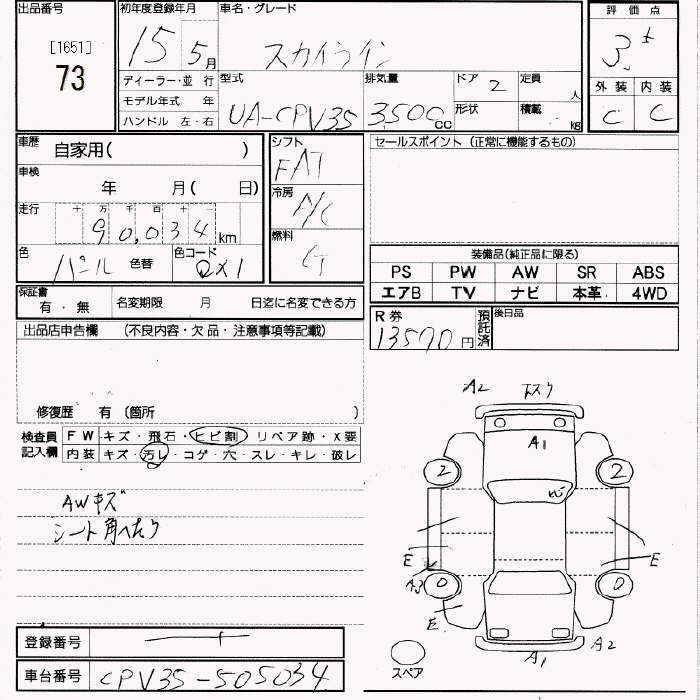 出品番号 初年度登録年月 車名・グレード 評価点
[1651] 15 5月 スカイライン 3.
73
ディーラー・並行 型式 排気量 ドア 2 定員 人 外装 内装
モデル年式 年 UA-CPV35 3,500cc 形状 積載 kg C C
ハンドル 左・右
車歴 自家用( ) シフト FAT セールスポイント (正常に機能するもの)
車検 年 月( 日) 冷房 A/C
走行 十 万 千 百 十 一
90,034 km 燃料 G
色 パール 色替 色コード QX1 装備品(純正品に限る)
PS PW AW SR ABS
エアB TV ナビ 本革 4WD
保証書 有・無 名変期限 月 日迄に名変できる方
R券 13570円 預託済 後日品
出品店申告欄 (不良内容・欠品・注意事項等記載)
修復歴 有 (箇所 )
検査員記入欄 FW キズ・飛石・ヒビ割・リペア跡・X要
内装 キズ・汚レ・コゲ・穴・スレ・キレ・破レ
AWキズ
シート角へたり
A2 下スリ
A1
2 2
ヒビ
E E
A3 0 0
E
A1 A2
スペア
登録番号
車台番号 CPV35-505034